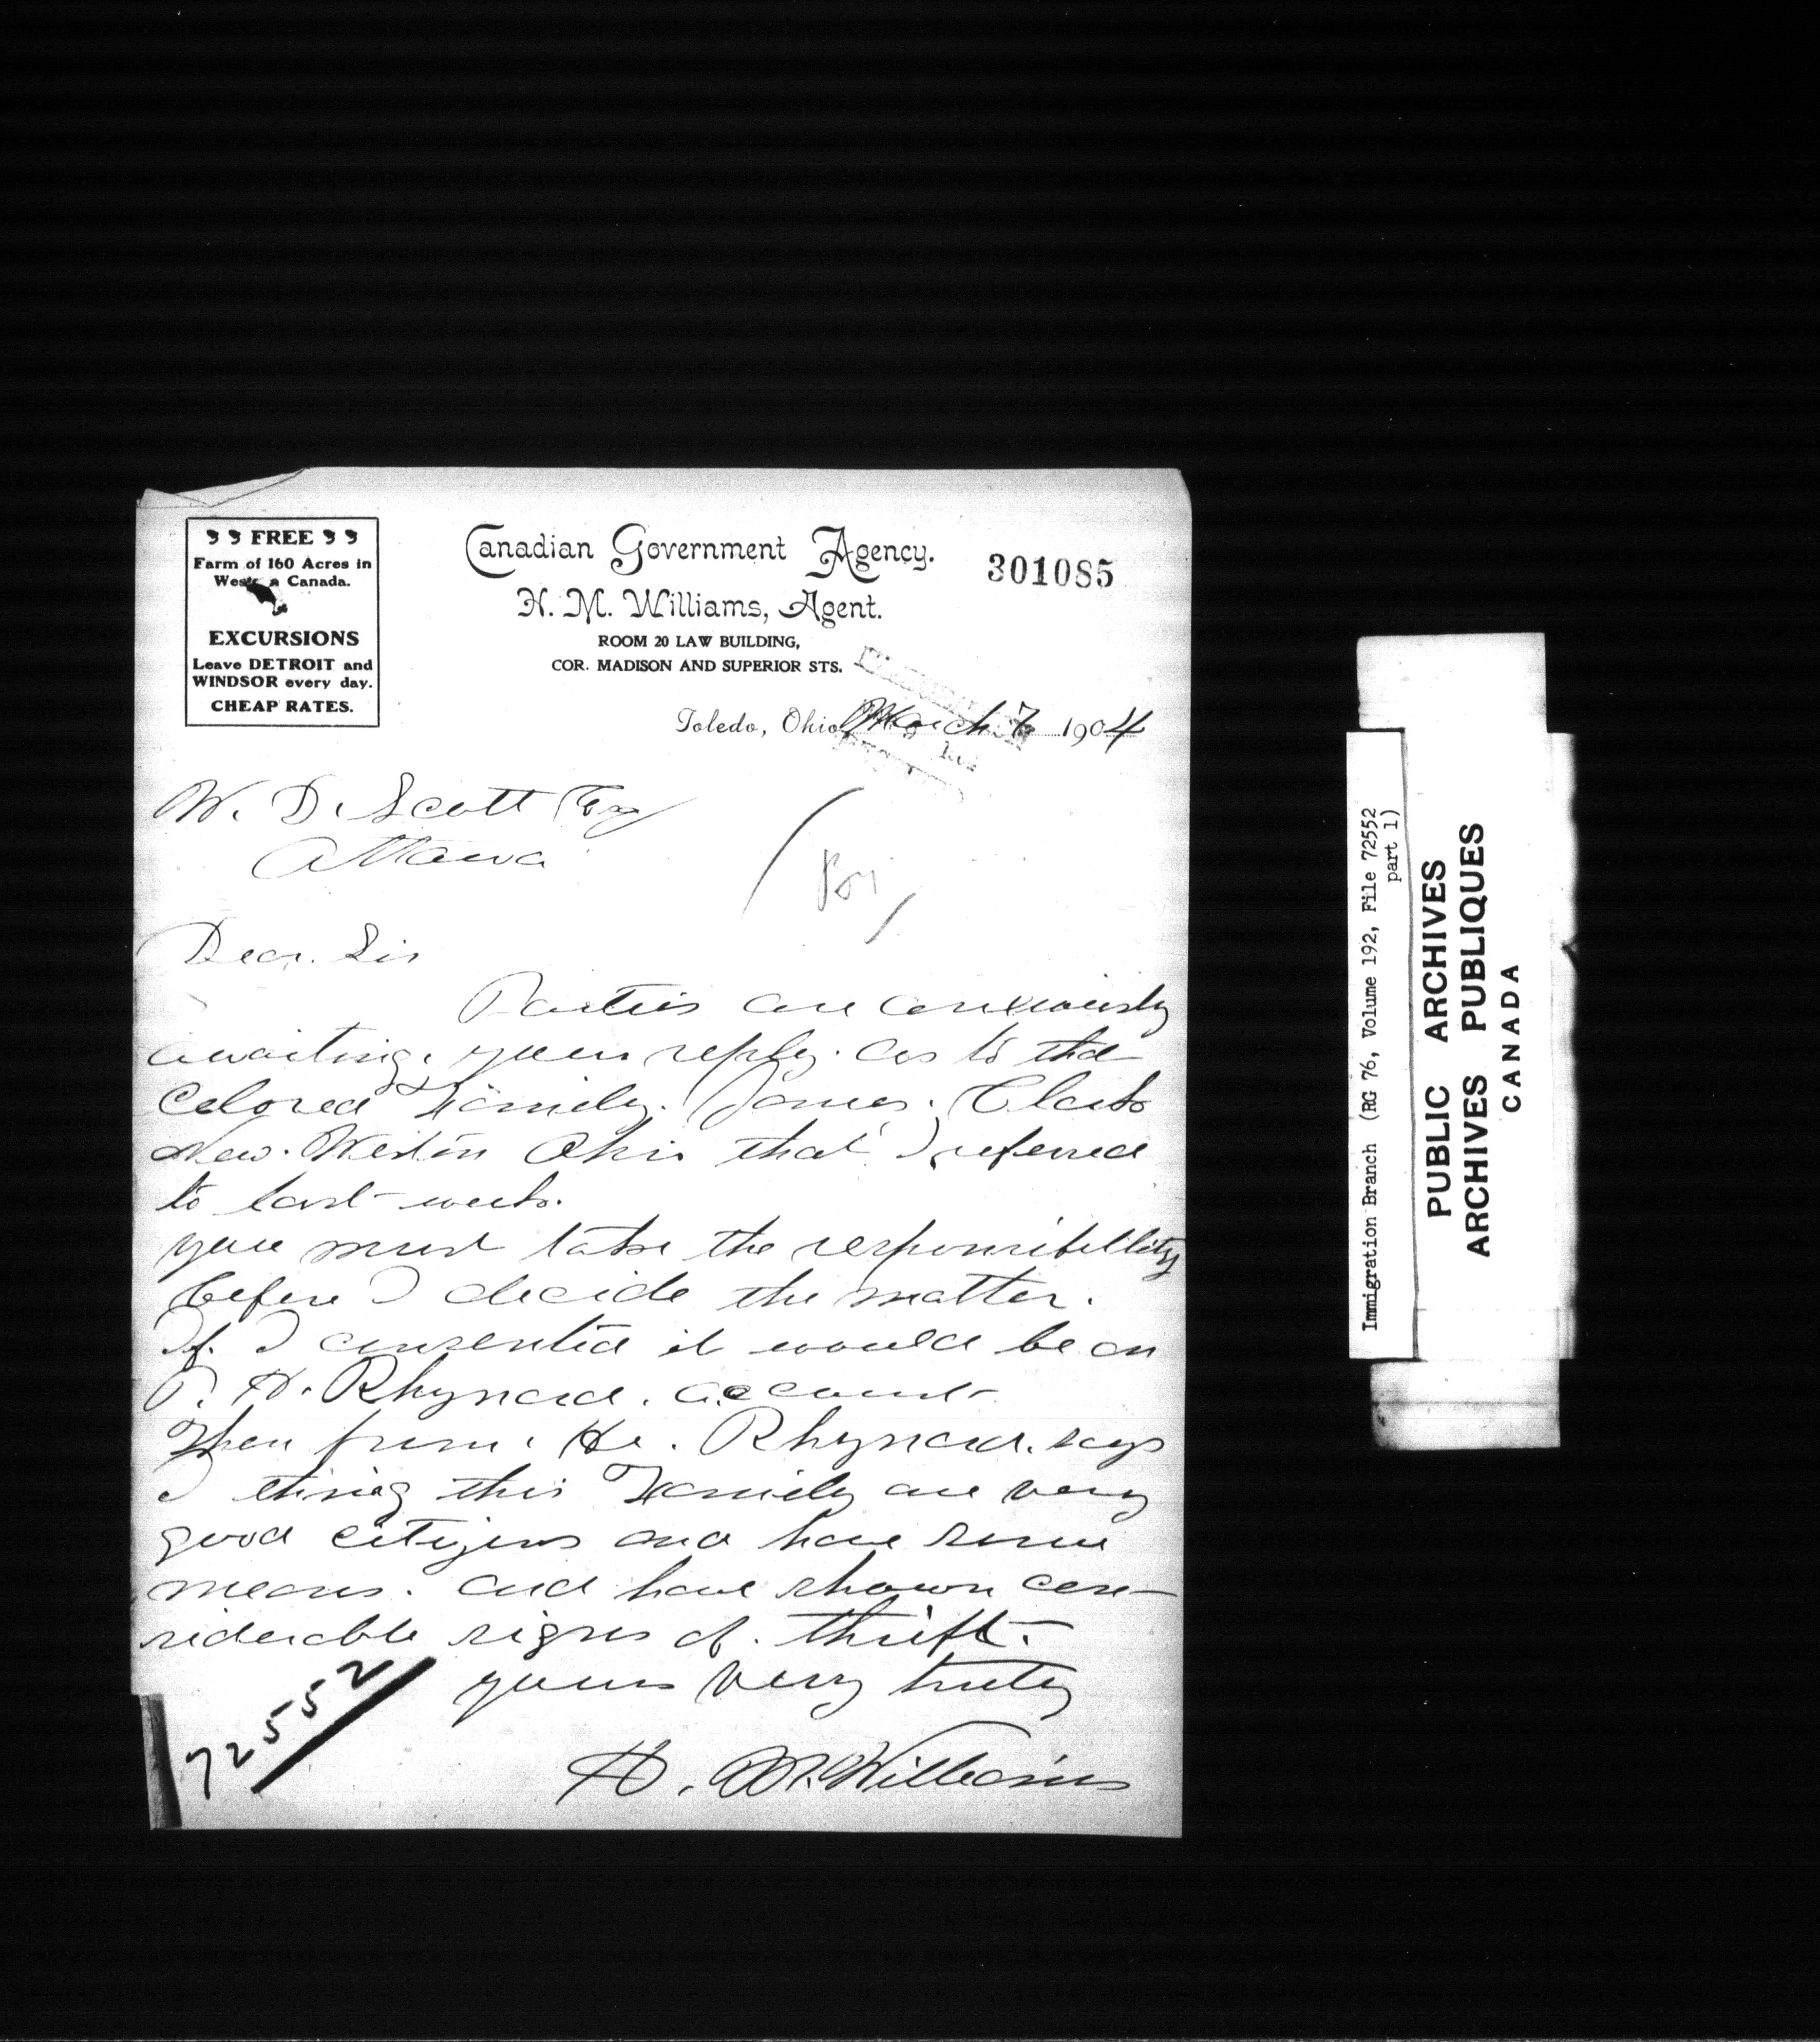 FREE
Farm of 160 Acres in
Western Canada.
EXCURSIONS
Leave DETROIT and
WINDSOR every day.
CHEAP RATES.
Canadian Government Agency.
H. M. Williams, Agent.
ROOM 20 LAW BUILDING,
COR. MADISON AND SUPERIOR STS.
301085
Toledo, Ohio, March 7 1904
W. D. Scott Esq
Ottawa
Dear. Sir
Parties are anxiously
awaiting. your reply. as to the
Colored Family. James. Clark
New. Weston Ohio that I refered
to last week.
you must take the responsibillity
before I decide the matter.
If. I consented it would be on
P. H. Rhynard. account
Then from. He. Rhynard. says
I thing this Family are very
good citizens and have some
means. and have shown con-
siderable signs of. thrift.
yours very truly
H. M. Williams
72552
Immigration Branch (RG 76, Volume 192, File 72552
part 1)
PUBLIC ARCHIVES
ARCHIVES PUBLIQUES
CANADA